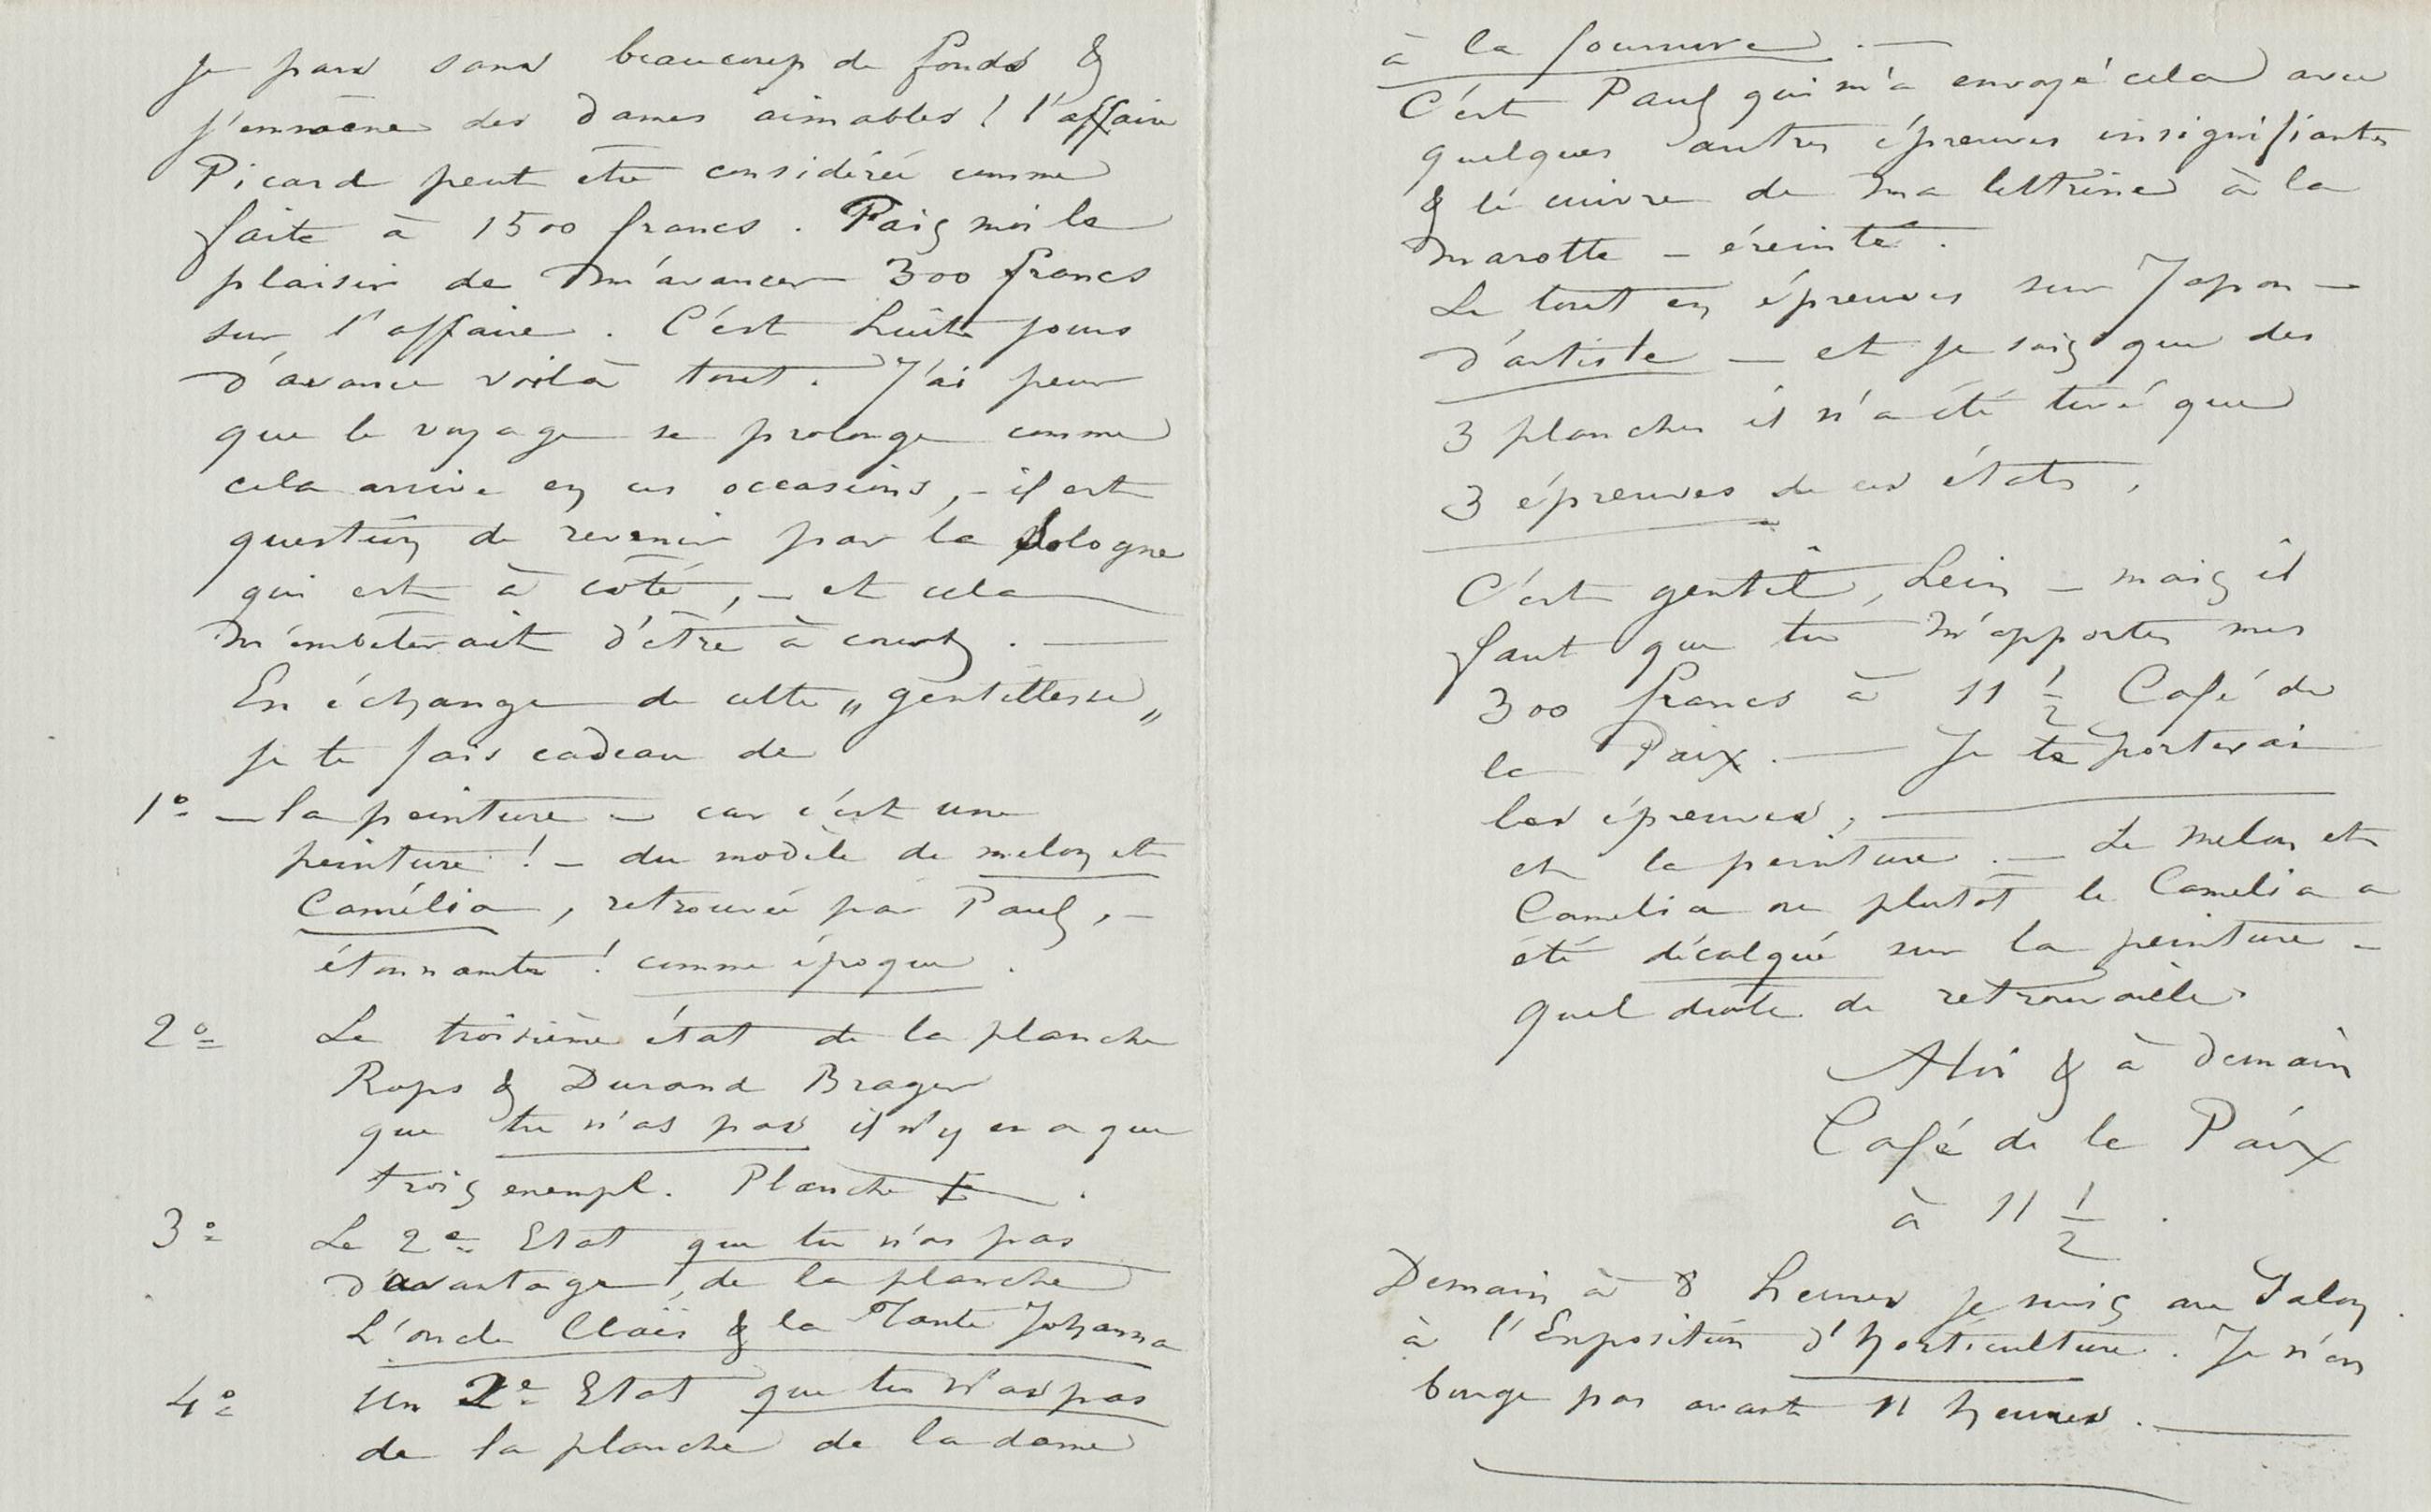 Je pars sans beaucoup de fonds &
j'emmène des dames aimables ! l'affaire
Picard peut être considérée comme
faite à 1500 francs. Fais moi le
plaisir de m'avancer 300 francs
sur l'affaire. C'est huit jours
d'avance voilà tout. J'ai peur
que le voyage se prolonge comme
cela arrive en ces occasions, – il est
question de revenir par la Sologne
qui est à côté, – et cela
m'embêterait d'être à court. —
En échange de cette „gentillesse„
je te fais cadeau de
1° – la peinture – car c'est une
peinture ! – du modèle de melon et
Camélia, retrouvée par Paul, –
étonnante ! comme époque.
2° Le troisième état de la planche
Rops & Durand Brager
que tu n'as pas il n'y en a que
trois exempl. Planche
3° Le 2e Etat que tu n'as pas
d'avantage, de la planche
L'oncle Claës & la Tante Johanna
4° Un 2e Etat que tu n'as pas
de la planche de la dame
à la fourrure. —
C'est Paul qui m'a envoyé cela avec
quelques autres épreuves insignifiantes
& le cuivre de ma lettrine à la
marotte – éreinté.
Le tout en épreuves sur Japon –
d'artiste – et je sais que des
3 planches il n'a été tiré que
3 épreuves de ces états,
C'est gentil, hein – mais il
faut que tu m'apportes mes
300 francs à 11 1/2 Café de
la Paix. — Je te porterai
les épreuves, —
et la peinture. — Le melon et
Camelia ou plutôt le Camelia a
été décalqué sur la peinture –
quel drôle de retrouvaille.
A toi & à demain
Café de la Paix
à 11 1/2.
Demain à 8 heures je suis au Salon.
à l'Exposition d'horticulture. Je n'en
bouge pas avant 11 heures. —